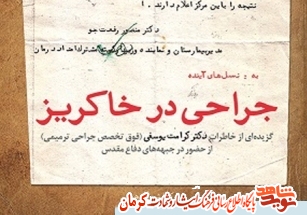 نتیجه را باین مرکز اعلام دارند.
دکتر منصور رفعت جو
مدیر بیمارستان و نماینده
به: نسل‌های آینده
جراحی در خاکریز
گزیده‌ای از خاطرات دکتر کرامت یوسفی (فوق تخصص جراحی ترمیمی)
از حضور در جبهه‌های دفاع مقدس
نوید شاهد
پایگاه اطلاع رسانی فرهنگ ایثار و شهادت کرمان